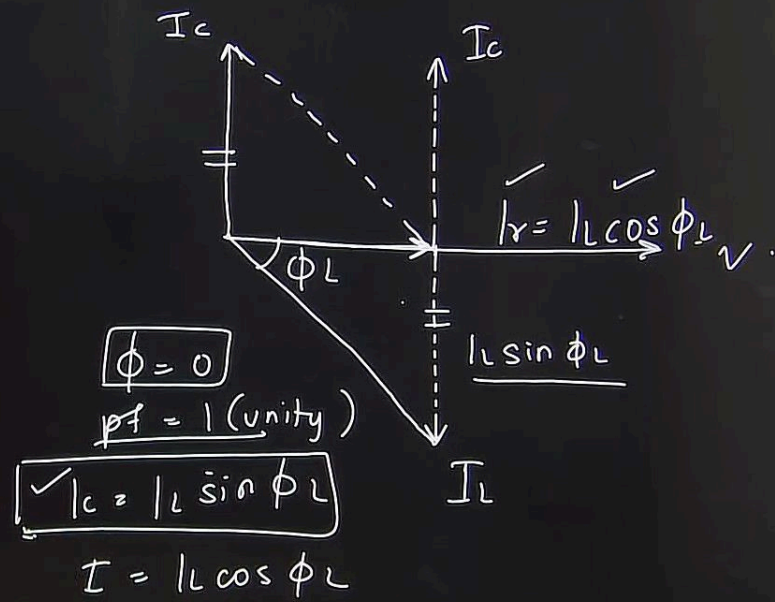 Ic
Ic
Ir = IL cos ϕL
V
ϕL
IL sin ϕL
ϕ = 0
pf = 1 (unity)
Ic = IL sin ϕL
IL
I = IL cos ϕL